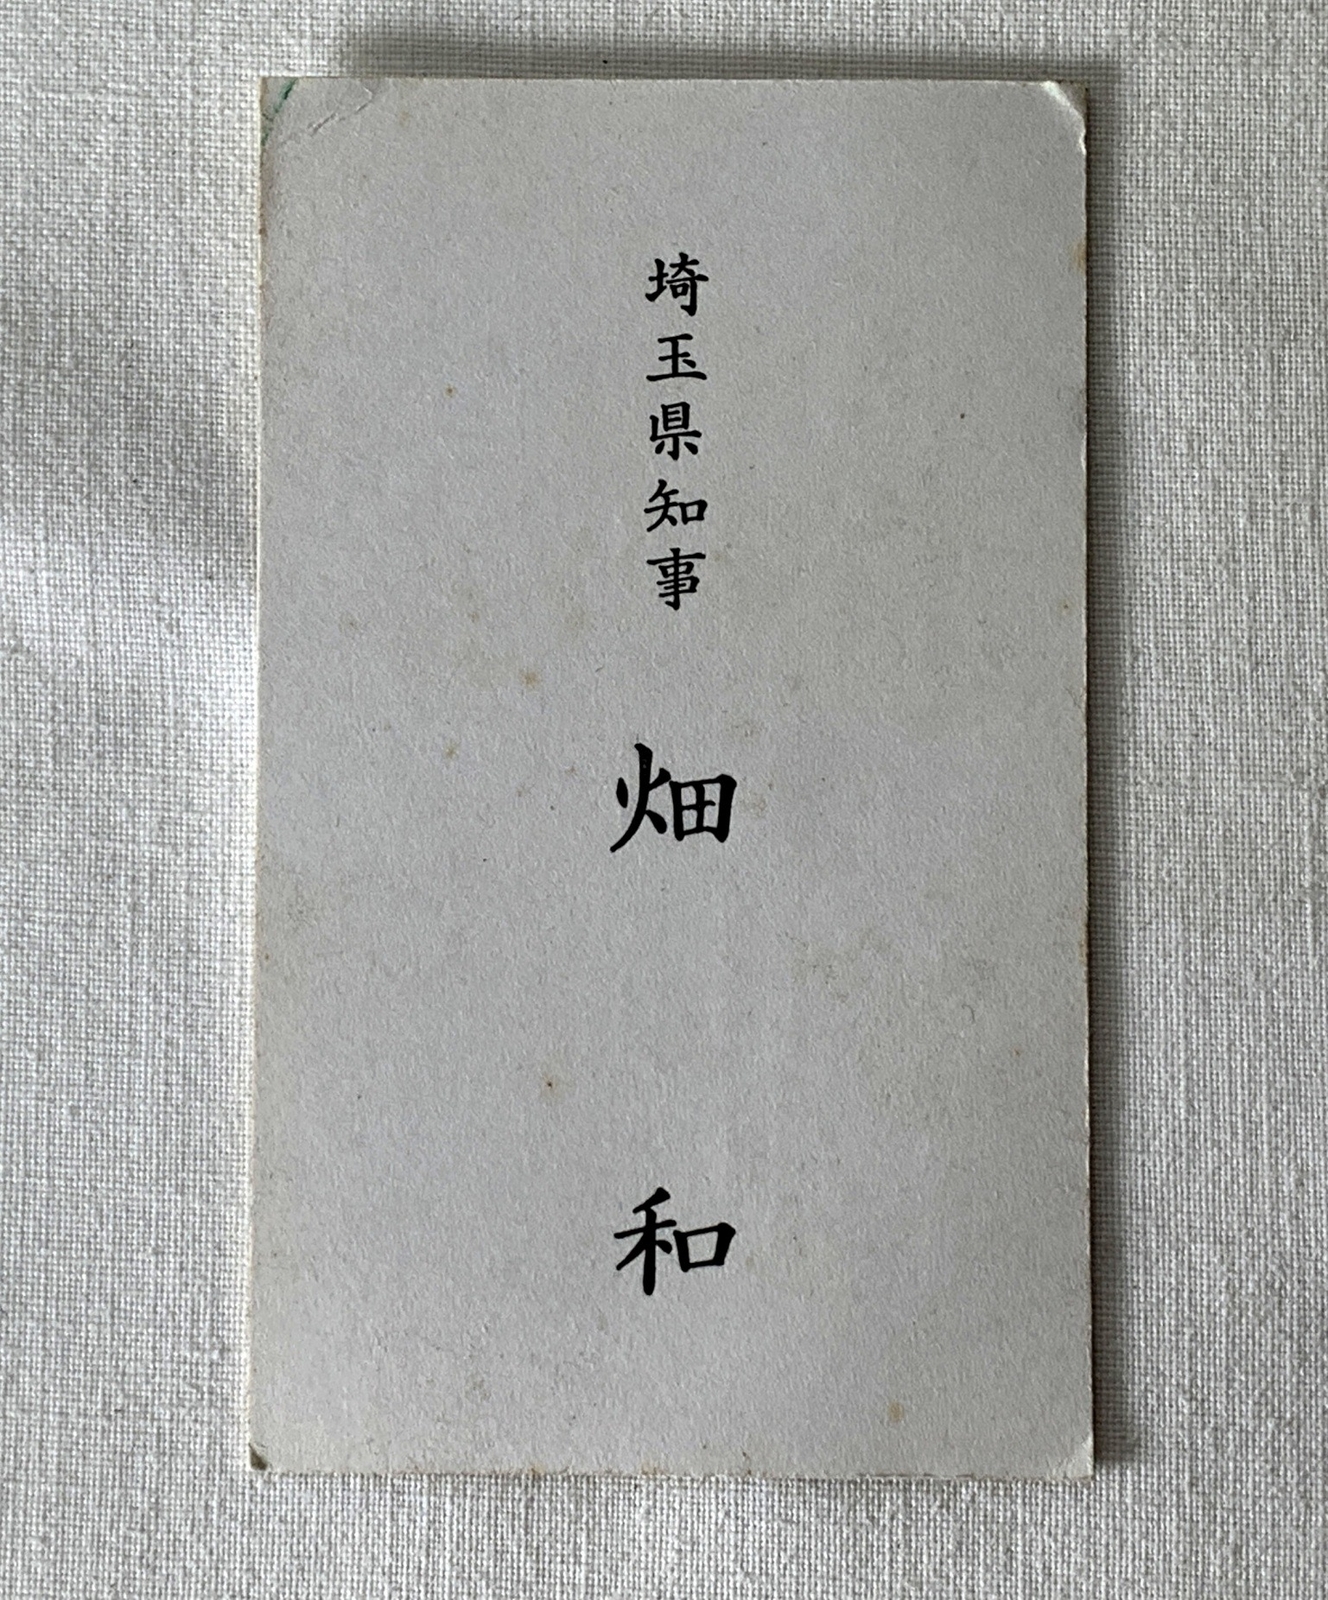 埼玉県知事
畑和